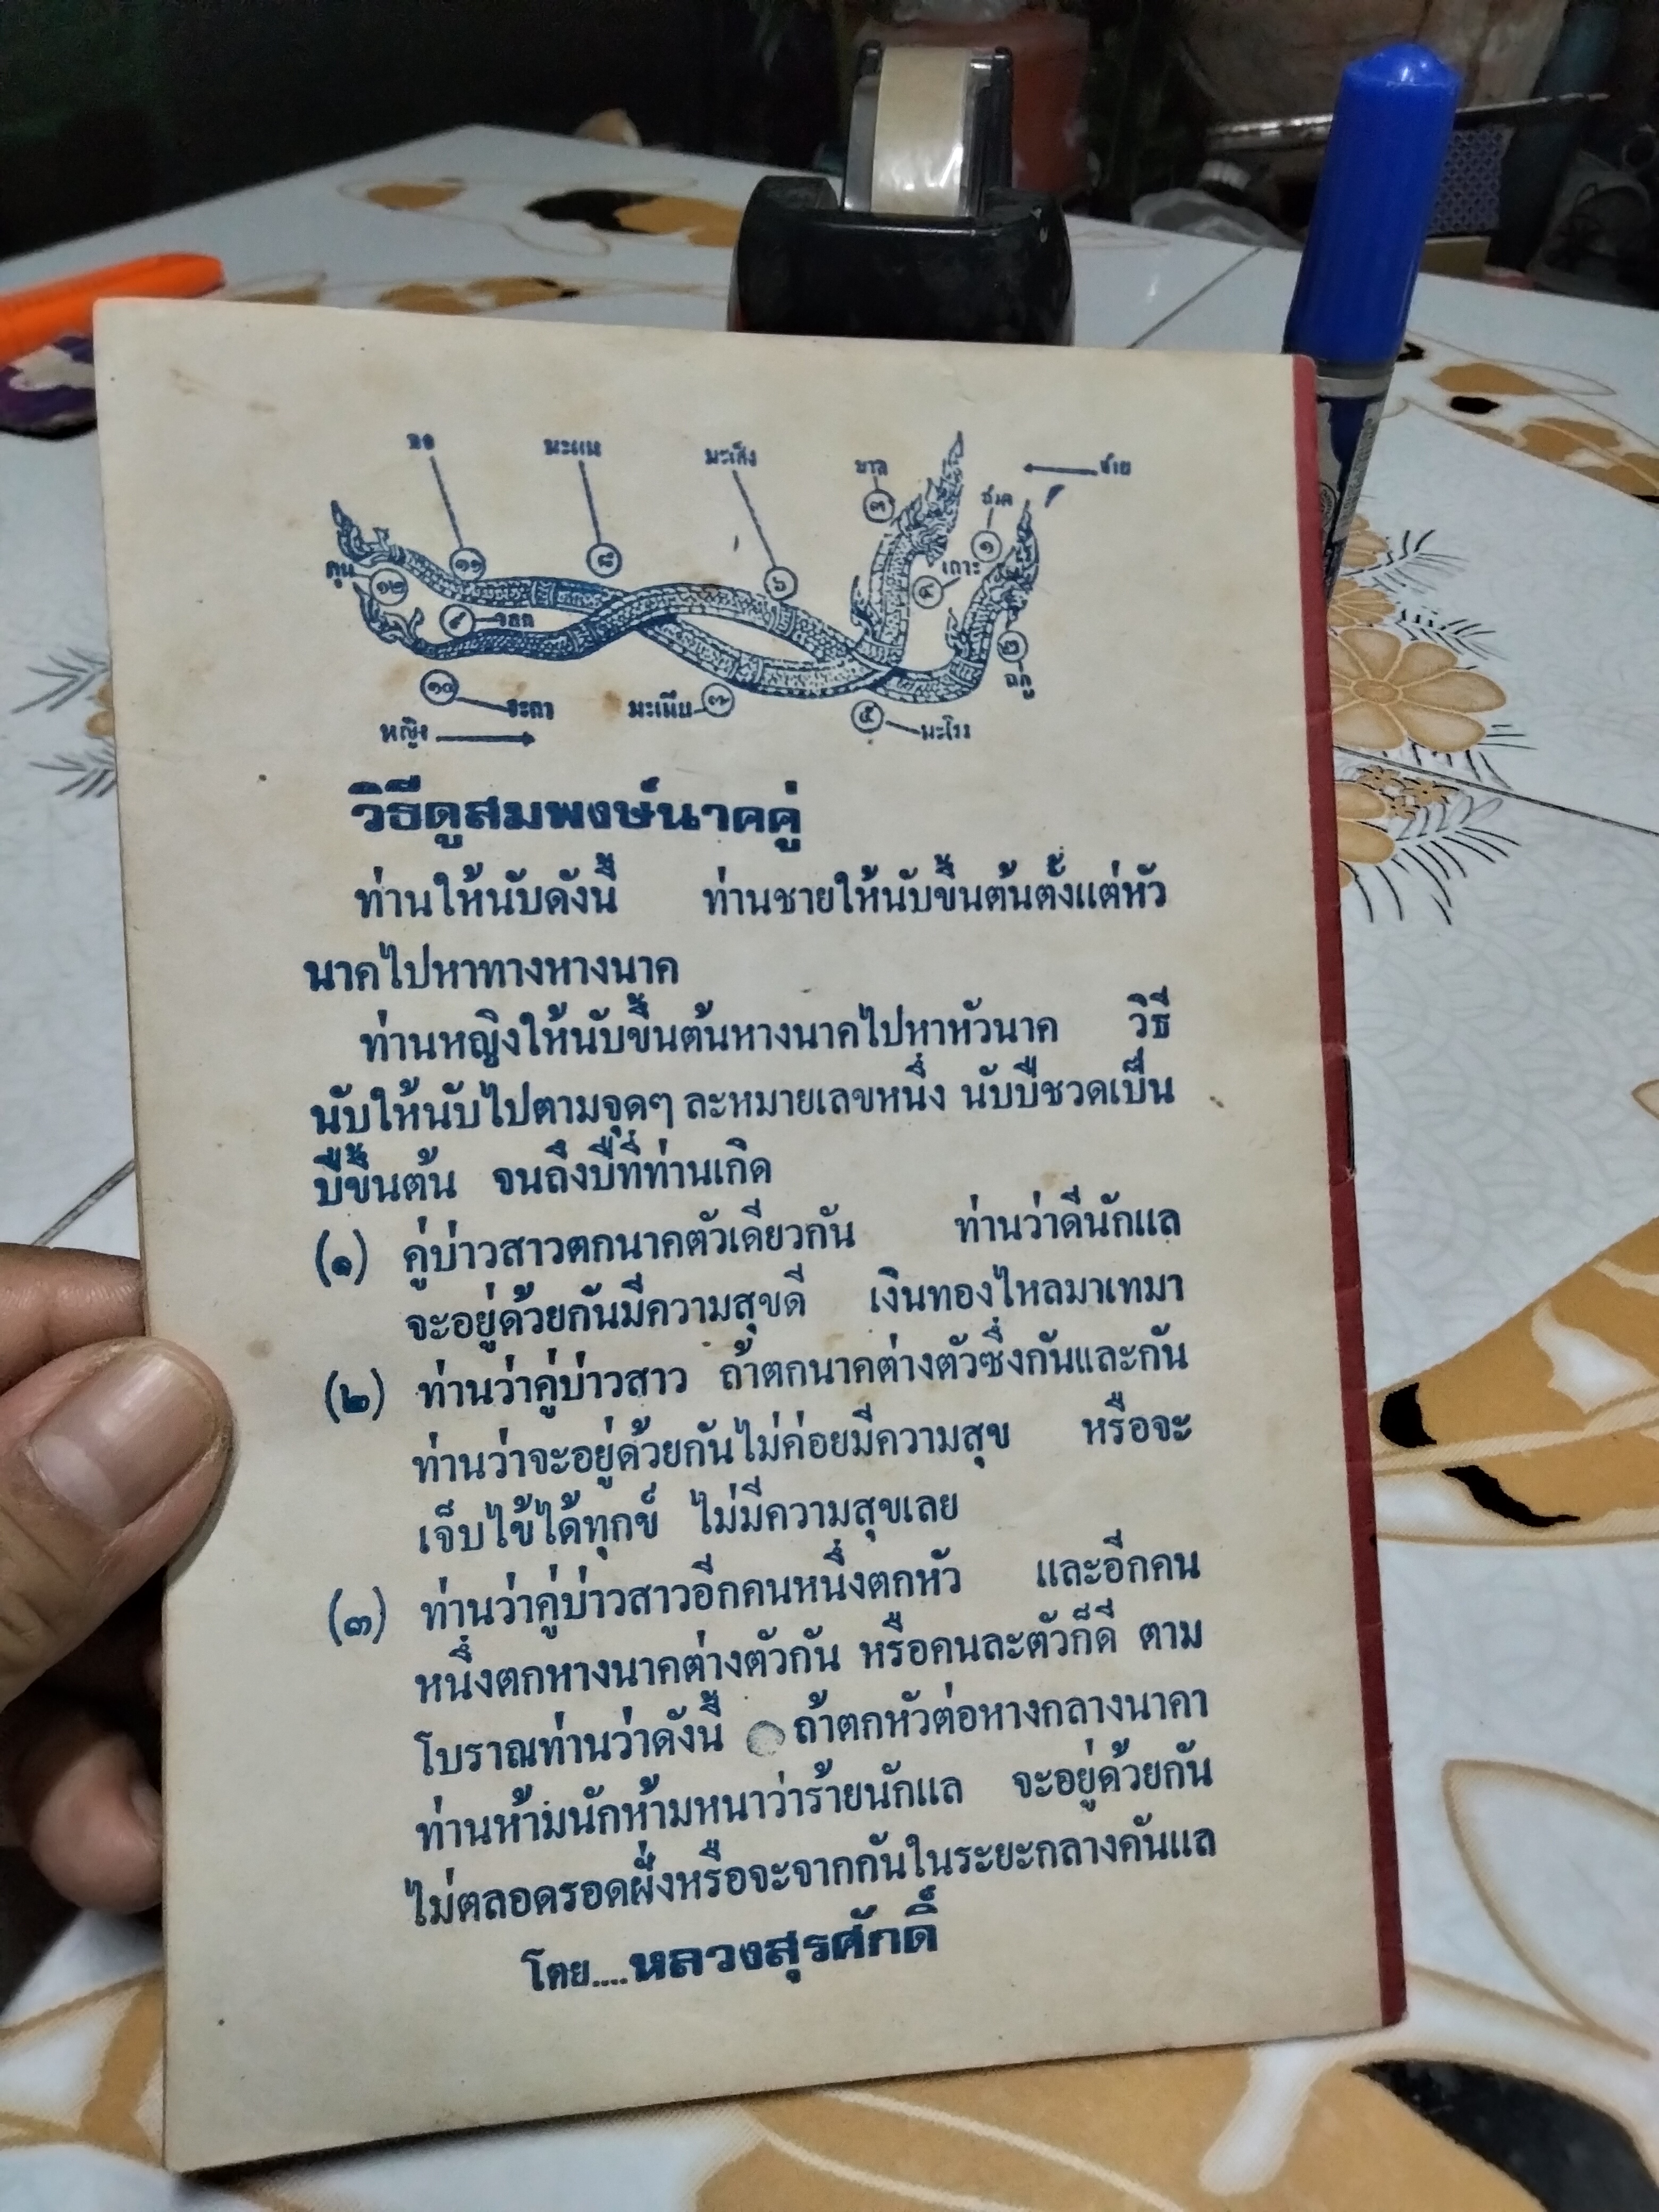 จอ
มะแม
มะเส็ง
ขาล
ชาย
ชวด
๓
๑
เถาะ
๔
๑๑
๘
๖
กุน
๑๒
๙
วอก
๒
ฉลู
๑๐
ระกา
มะเมีย
๗
๕
มะโรง
หญิง
วิธีดูสมพงษ์นาคคู่
ท่านให้นับดังนี้ ท่านชายให้นับขึ้นต้นตั้งแต่หัว
นาคไปหาทางหางนาค
ท่านหญิงให้นับขึ้นต้นหางนาคไปหาหัวนาค วิธี
นับให้นับไปตามจุดๆ ละหมายเลขหนึ่ง นับปีชวดเป็น
ปีขึ้นต้น จนถึงปีที่ท่านเกิด
(๑) คู่บ่าวสาวตกนาคตัวเดียวกัน ท่านว่าดีนักแล
จะอยู่ด้วยกันมีความสุขดี เงินทองไหลมาเทมา
(๒) ท่านว่าคู่บ่าวสาว ถ้าตกนาคต่างตัวซึ่งกันและกัน
ท่านว่าจะอยู่ด้วยกันไม่ค่อยมีความสุข หรือจะ
เจ็บไข้ได้ทุกข์ ไม่มีความสุขเลย
(๓) ท่านว่าคู่บ่าวสาวอีกคนหนึ่งตกหัว และอีกคน
หนึ่งตกหางนาคต่างตัวกัน หรือคนละตัวก็ดี ตาม
โบราณท่านว่าดังนี้ ถ้าตกหัวต่อหางกลางนาคา
ท่านห้ามนักห้ามหนาว่าร้ายนักแล จะอยู่ด้วยกัน
ไม่ตลอดรอดฝั่งหรือจะจากกันในระยะกลางคันแล
โดย....หลวงสุรศักดิ์